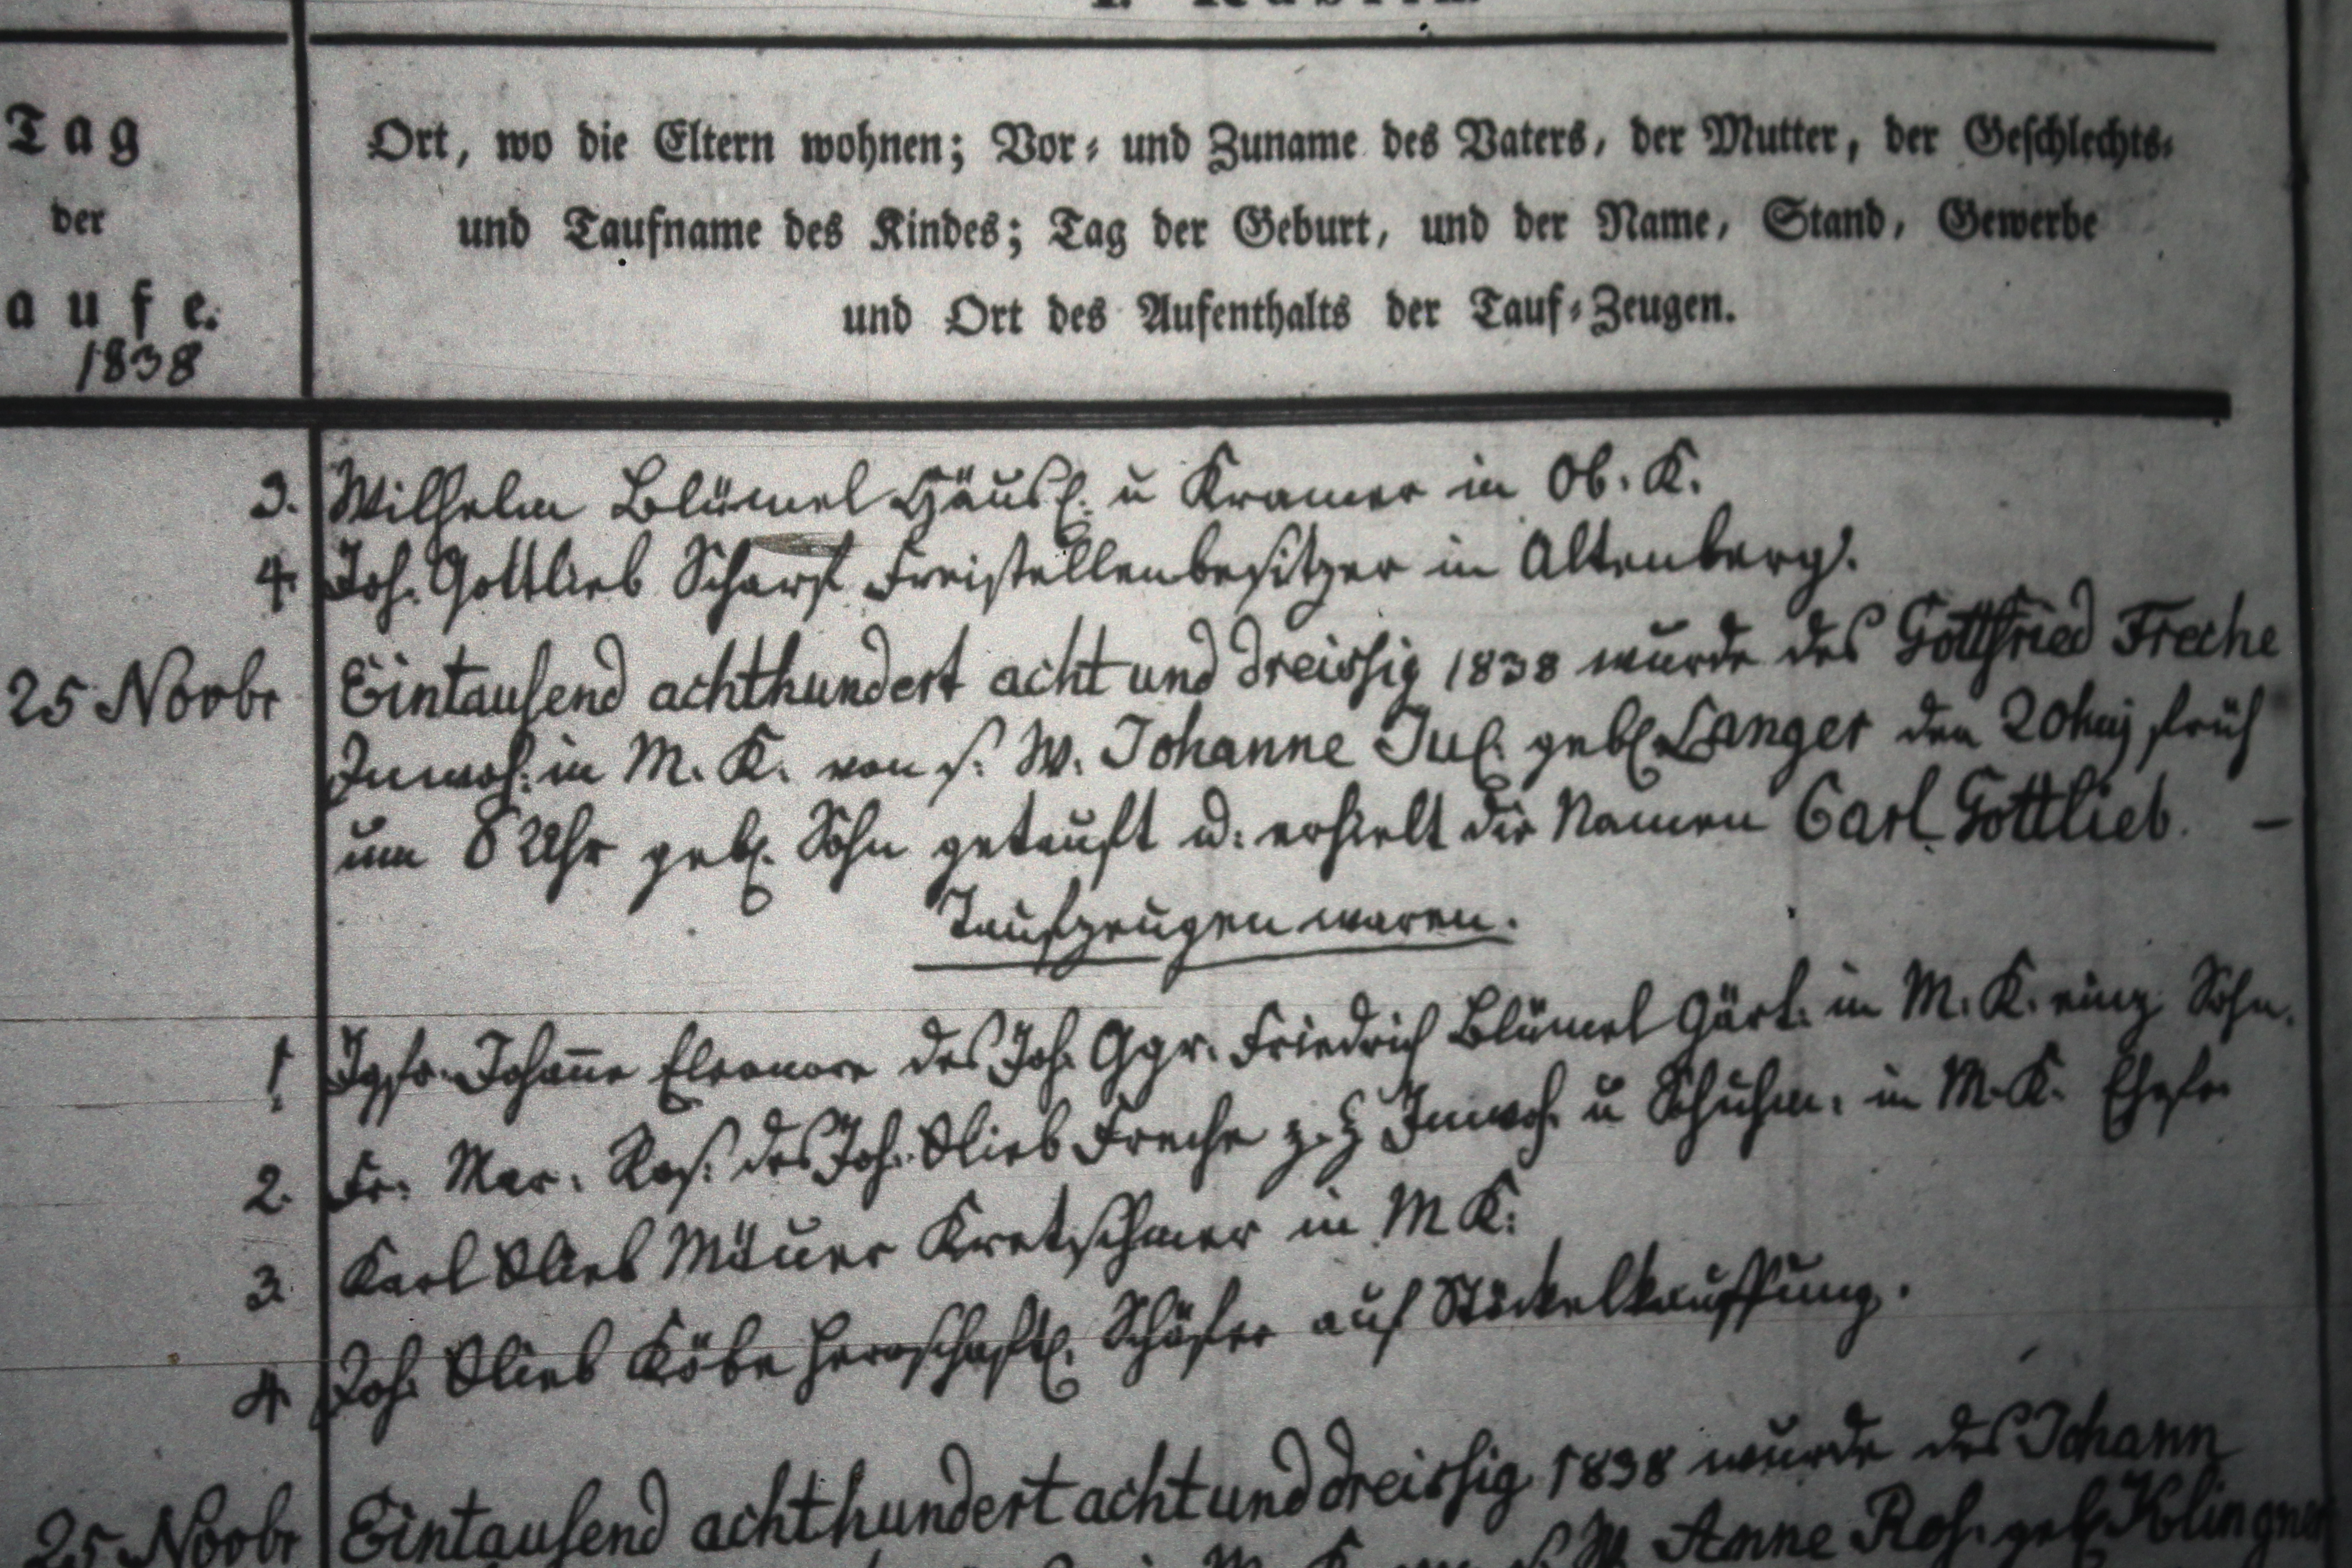 Tag
der
aufe.
1838
Ort, wo die Eltern wohnen; Vor- und Zuname des Vaters, der Mutter, der Geschlechts-
und Taufname des Kindes; Tag der Geburt, und der Name, Stand, Gewerbe
und Ort des Aufenthalts der Tauf-Zeugen.
3. Wilhelm Blümel Häusl. u Kramer in Ob. K.
4. Joh. Gottlieb Scharf Freistellenbesitzer in Altenberg.
25 Novbr Eintausend achthundert acht und dreissig 1838 wurde des Gottfried Freche
Inwoh. in M. K. von s. W. Johanne Jul. gebl Langer den 20huj früh
um 8 Uhr geb. Sohn getauft u. erhielt die Namen Carl Gottlieb. –
Taufzeugen waren.
1 Jgfr. Johanne Eleonore des Joh. Ggr. Friedrich Blümel Gärt. in M. K.
2. Fr. Mar. Ros. des Joh. Glieb Freche z. Z Inwoh. u Schuhm. in M. K. Ehefr
3. Karl Glieb Mäuer Kretschmer in M K.
4 Joh. Glieb Köbe herrschaftl. Schäfer auf Stöckelkauffung.
25 Novbr Eintausend achthundert acht und dreissig 1838 wurde des Johann
Anne Ros. geb. Klingner